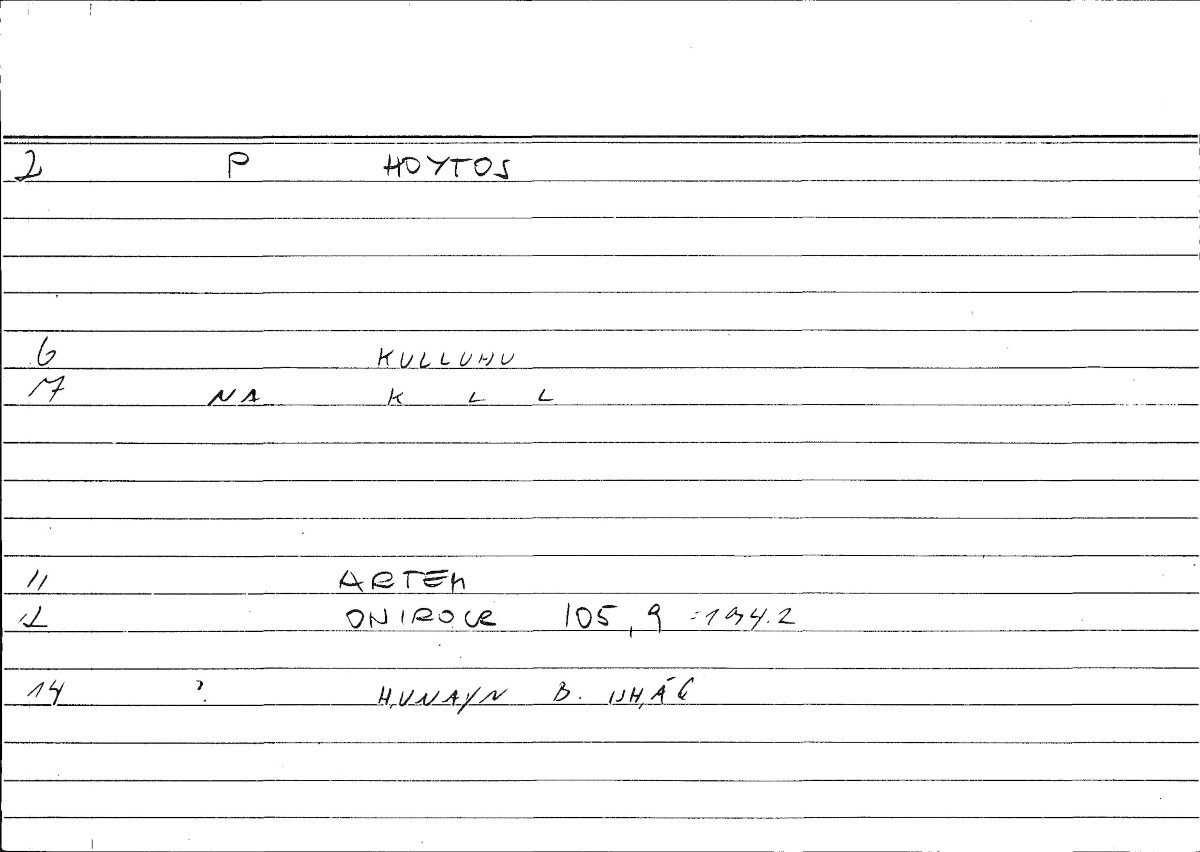 2 P HOYTOS
6 KULLUHU
7 NA K L L
11 ARTEM
12 ONIROCR 105,9 = 194.2
14 ? ḤUNAYN B. ISḤĀQ